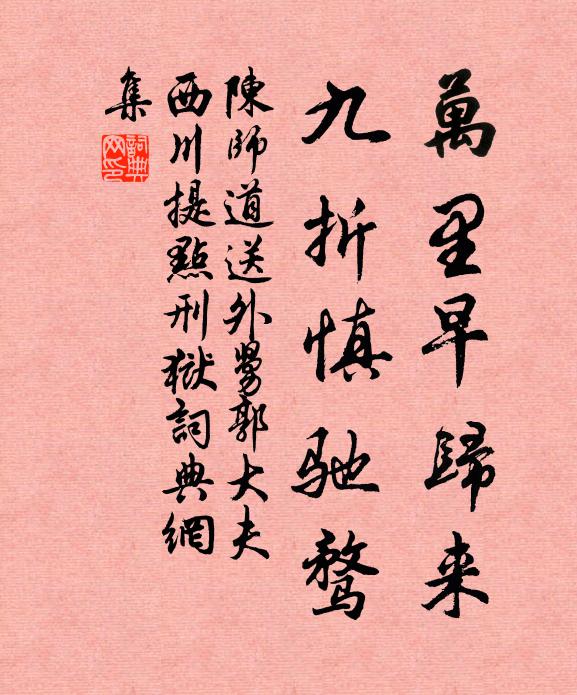 萬里早歸来
九折慎馳驁
陳師道送外舅郭大夫
西川提點刑獄詞典網
集
詞典
网印